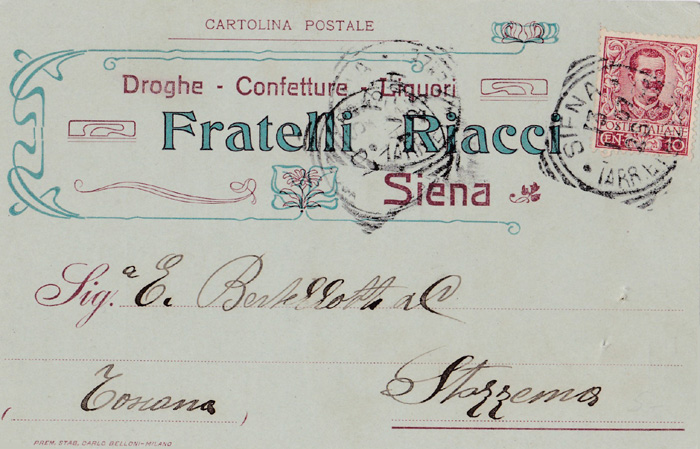 CARTOLINA POSTALE
Droghe - Confetture - Liquori
Fratelli Riacci
Siena
POSTE ITALIANE
CENT. 10
SIENA
Sig.ª E. Bertellotti & C
Stazzema
(Toscana)
PREM. STAB. CARLO BELLONI-MILANO